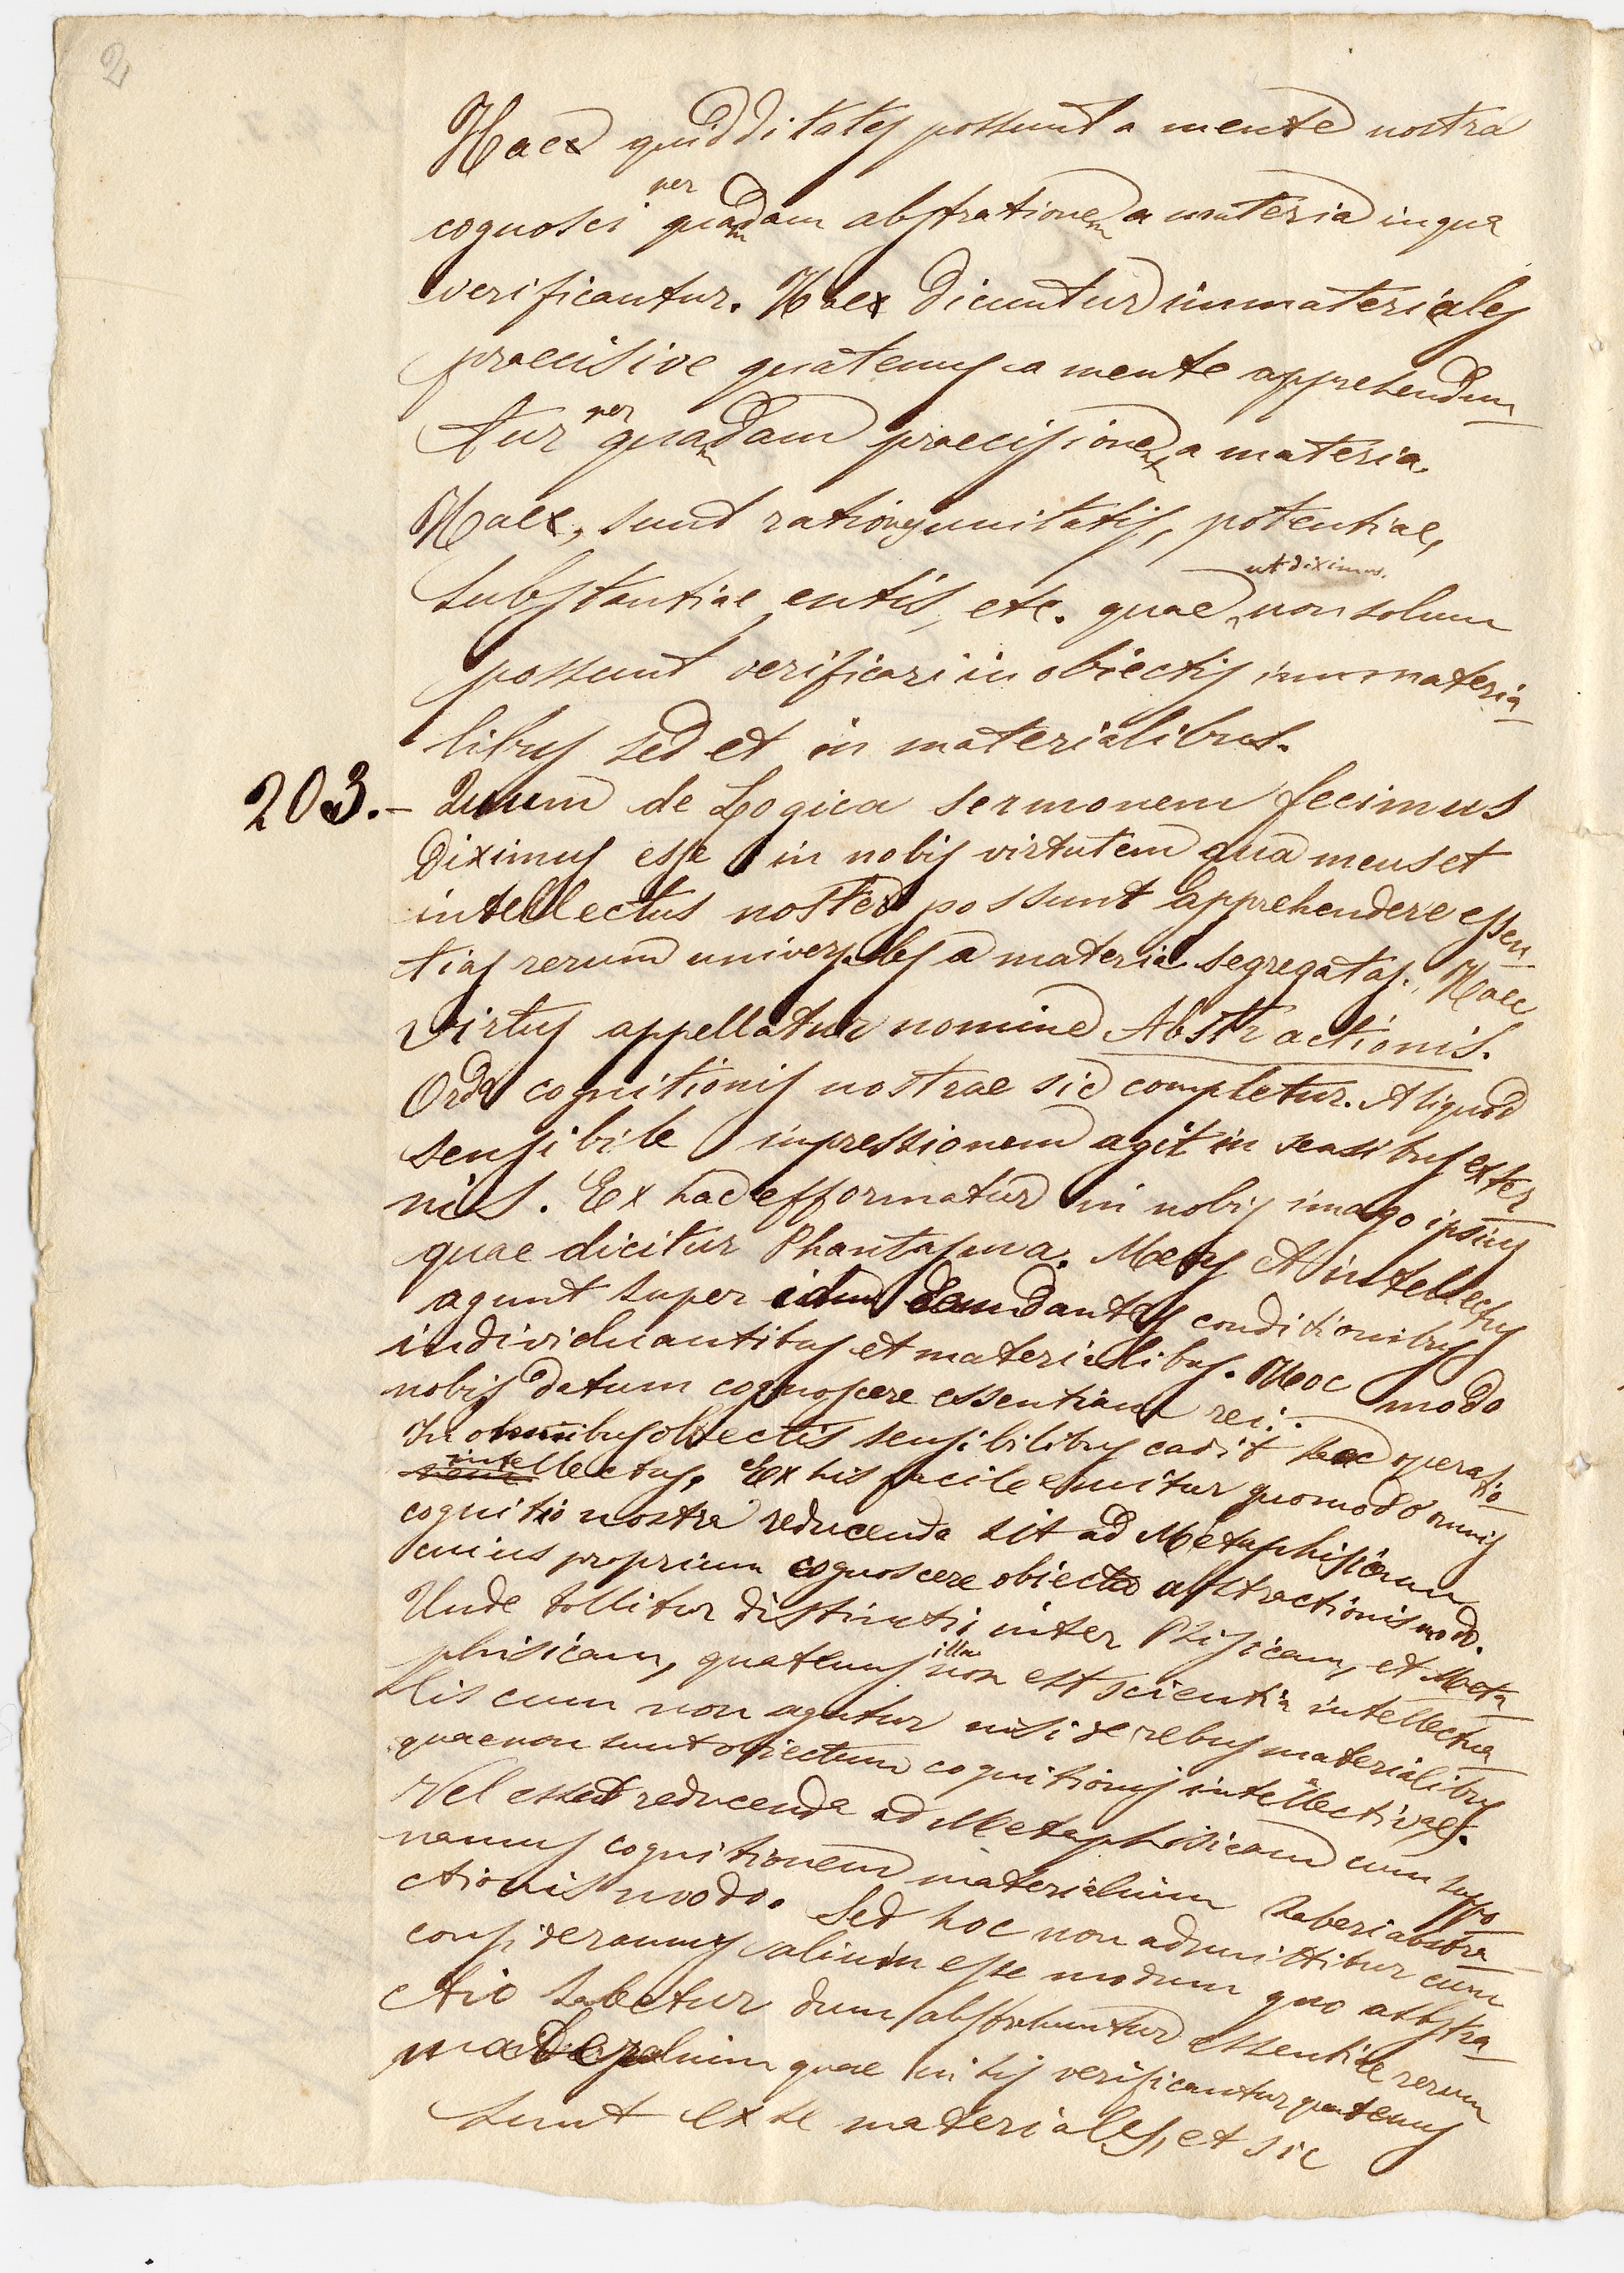 2
Haec quidditates possunt a mente nostra
cognosci per quamdam abstrationem a materia in qua
verificantur. Haec dicuntur immateriales
praecisive quatenus a mente apprehendun
tur per quamdam praecisionem a materia.
Haec, sunt rationes unitatis, potentiae,
substantiae, entis, etc. quae, ut diximus. non solum
possunt verificari in obiectis immateria
libus sed et in materialibus.
203.- Quum de Logica sermonem fecimus
diximus esse in nobis virtutem qua mens et
intellectus noster possunt apprehendere essen
tias rerum universales a materia segregatas. Haec
virtus appellatur nomine Abstractionis.
Ordo cognitionis nostrae sic completur. Aliquod
sensibile impressionem agit in sensibus exter
nis. Ex hac efformatur in nobis imago ipsius
quae dicitur Phantasma. Mens et intellectus
agunt super idem denudantes conditionibus
individuantibus et materialibus. Hoc modo
nobis datum cognoscere essentiam rei.
In omnibus obiectis sensibilibus cadit haec operatio
intellectus. Ex his facile eruitur quomodo omnis
cognitio nostra reducenda sit ad Metaphisicam
cuius proprium cognoscere obiecta abstractionis modo.
Unde tollitur distinctio inter Phisicam, et Meta
phisicam, quatenus illa non est scientia intellectua
lis cum non agatur nisi de rebus materialibus
quae non sunt obiectum cognitionis intellectivae.
Vel esset reducenda ad Metaphisicam cum suppo
namus cognitionem materialium haberi abstra
ctionis modo. Sed hoc non admittitur cum
consideramus alium esse modum quo abstra
ctio habetur dum abstrahuntur essentiae rerum
materialium quae in his verificantur quatenus
sunt ex se materiales, et sic